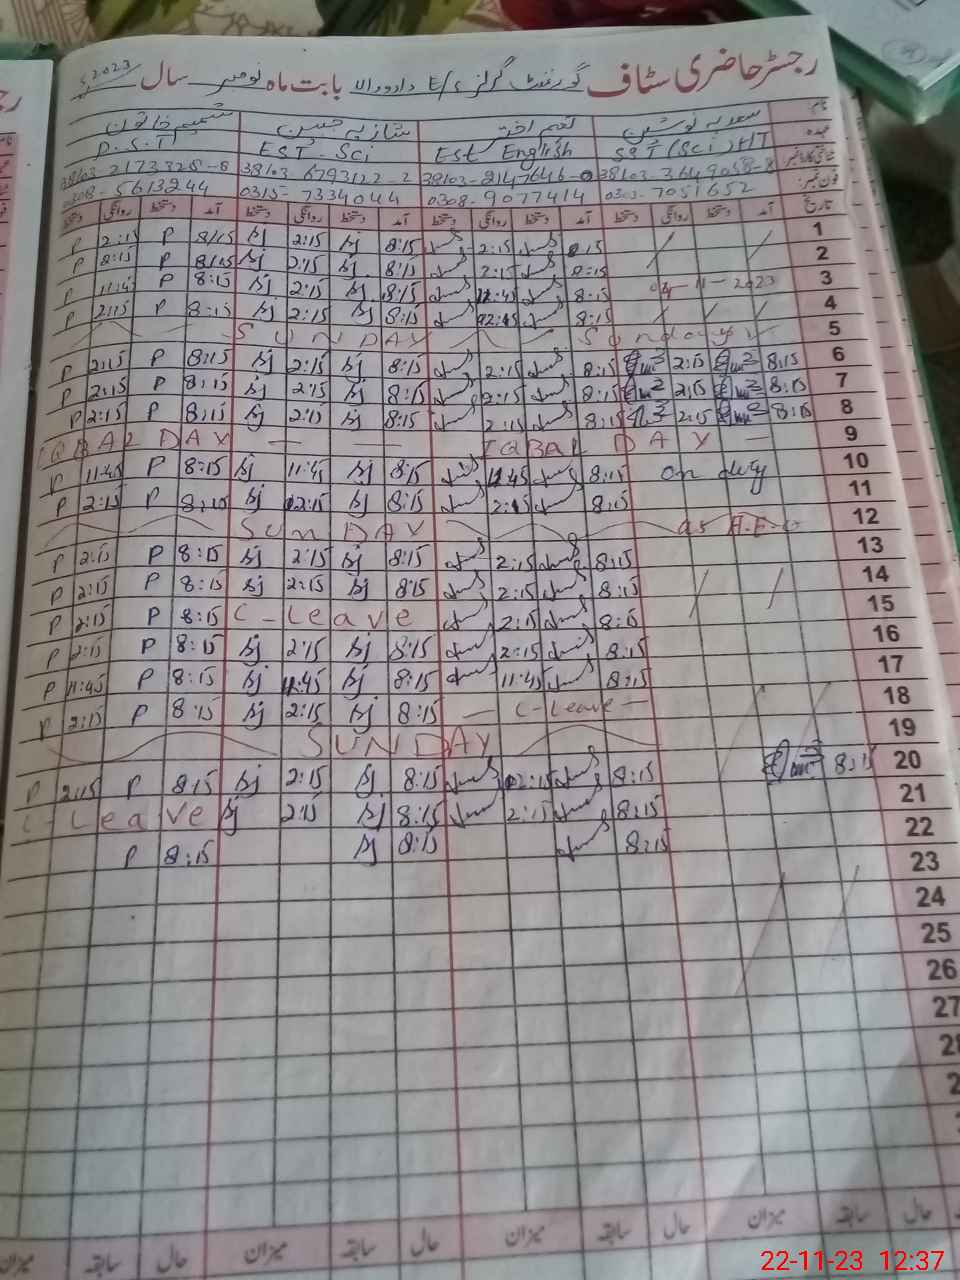 رجسٹر حاضری سٹاف گورنمنٹ گرلز E/S دادووالا بابت ماہ نومبر سال 2023
نام سعدیہ نوشین شازیہ جبین شمیم خاتون
عہدہ SST (Sci) HT Est English EST-Sci P.S.T
شناختی کارڈ نمبر 38103-3649058-8 38103-2147646-0 38103-6793122-2 38103-2173325-8
فون نمبر 0303-7051652 0308-9077414 0315-7334044 0308-5613244
تاریخ آمد دستخط روانگی دستخط آمد دستخط روانگی دستخط آمد دستخط روانگی دستخط آمد دستخط روانگی دستخط
1 8:15 2:15 8:15 Sj 2:15 Sj 8:15 P 2:15 P
2 8:15 2:15 8:15 Sj 2:15 Sj 8:15 P 2:15 P
3 04-11-2023 8:15 12:45 8:15 Sj 2:15 Sj 8:15 P 11:45 P
4 8:15 2:15 8:15 Sj 2:15 Sj 8:15 P 2:15 P
5 Sunday SUNDAY
6 8:15 2:15 8:15 2:15 8:15 Sj 2:15 Sj 8:15 P 2:15 P
7 8:15 2:15 8:15 2:15 8:15 Sj 2:15 Sj 8:15 P 2:15 P
8 8:15 2:15 8:15 2:15 8:15 Sj 2:15 Sj 8:15 P 2:15 P
9 IQBAL DAY — IQBAL DAY — —
10 on duty 8:15 11:45 8:15 Sj 11:45 Sj 8:15 P 11:45 P
11 8:15 2:15 8:15 Sj 2:15 Sj 8:15 P 2:15 P
12 as A.E.O SUNDAY
13 8:15 2:15 8:15 Sj 2:15 Sj 8:15 P 2:15 P
14 8:15 2:15 8:15 Sj 2:15 Sj 8:15 P 2:15 P
15 8:15 2:15 C-Leave 8:15 P 2:15 P
16 8:15 2:15 8:15 Sj 2:15 Sj 8:15 P 2:15 P
17 8:15 11:45 8:15 Sj 11:45 Sj 8:15 P 11:45 P
18 — C-Leave — 8:15 Sj 2:15 Sj 8:15 P 2:15 P
19 SUNDAY
20 8:15 8:15 2:15 8:15 Sj 2:15 Sj 8:15 P 2:15 P
21 8:15 2:15 8:15 Sj 2:15 Sj C-Leave
22 8:15 8:15 Sj 8:15 P
23
24
25
26
27
حال سابقہ میزان حال سابقہ میزان حال سابقہ میزان حال سابقہ میزان
22-11-23 12:37